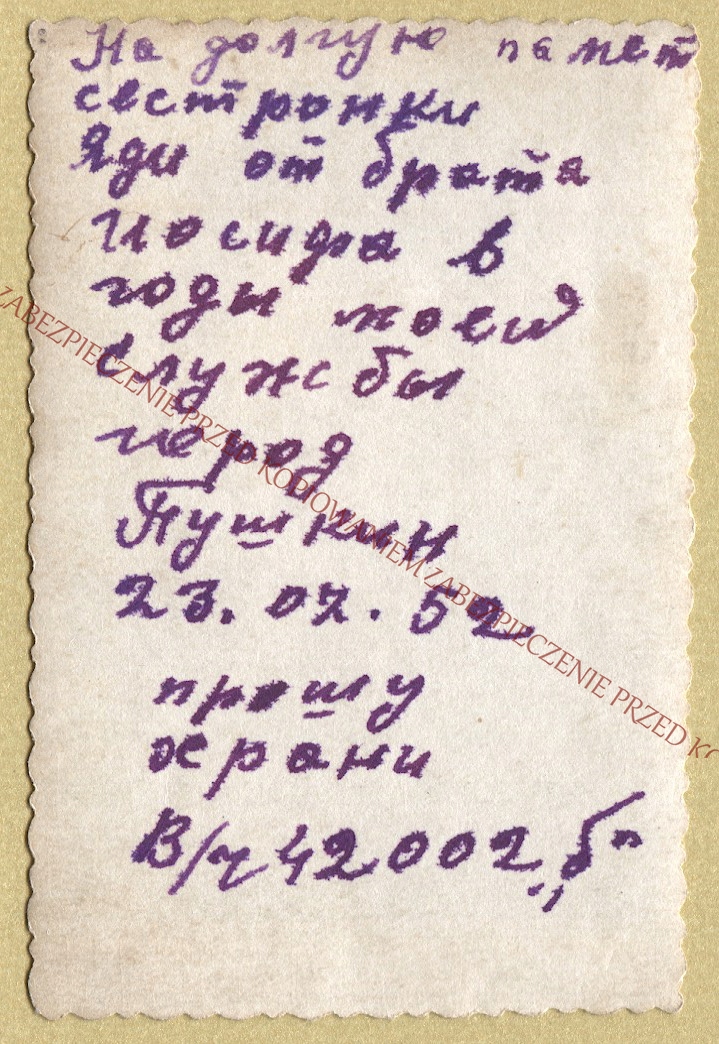 На долгую памет
сестронки
Яди от брата
Иосифа в
годы моей
службы
город
Пушкин
23.07.52
прошу
храни
В/ч 42002 „б"
ZABEZPIECZENIE PRZED KOPIOWANIEM ZABEZPIECZENIE PRZED KO